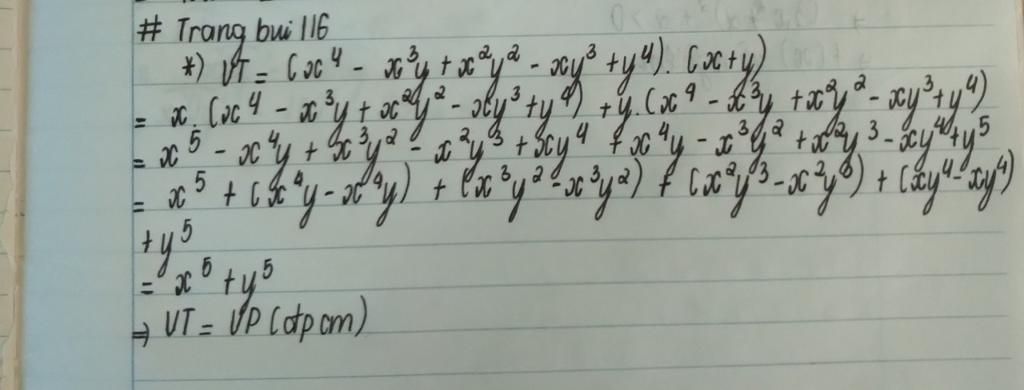 # Trang bui 116
*) VT = (x⁴ - x³y + x²y² - xy³ + y⁴). (x+y)
= x. (x⁴ - x³y + x²y² - xy³ + y⁴) + y. (x⁴ - x³y + x²y² - xy³ + y⁴)
= x⁵ - x⁴y + x³y² - x²y³ + xy⁴ + x⁴y - x³y² + x²y³ - xy⁴ + y⁵
= x⁵ + (x⁴y - x⁴y) + (x³y² - x³y²) + (x²y³ - x²y³) + (xy⁴ - xy⁴)
+ y⁵
= x⁵ + y⁵
⇒ VT = VP (đpcm)